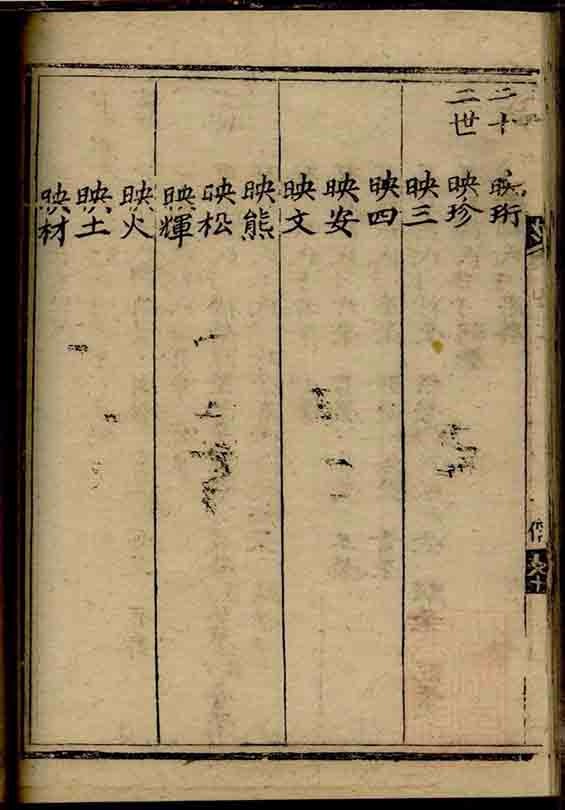 二十
二世
映珩
映珍
映三
映四
映安
映文
映熊
映松
映輝
映火
映土
映材
卷十